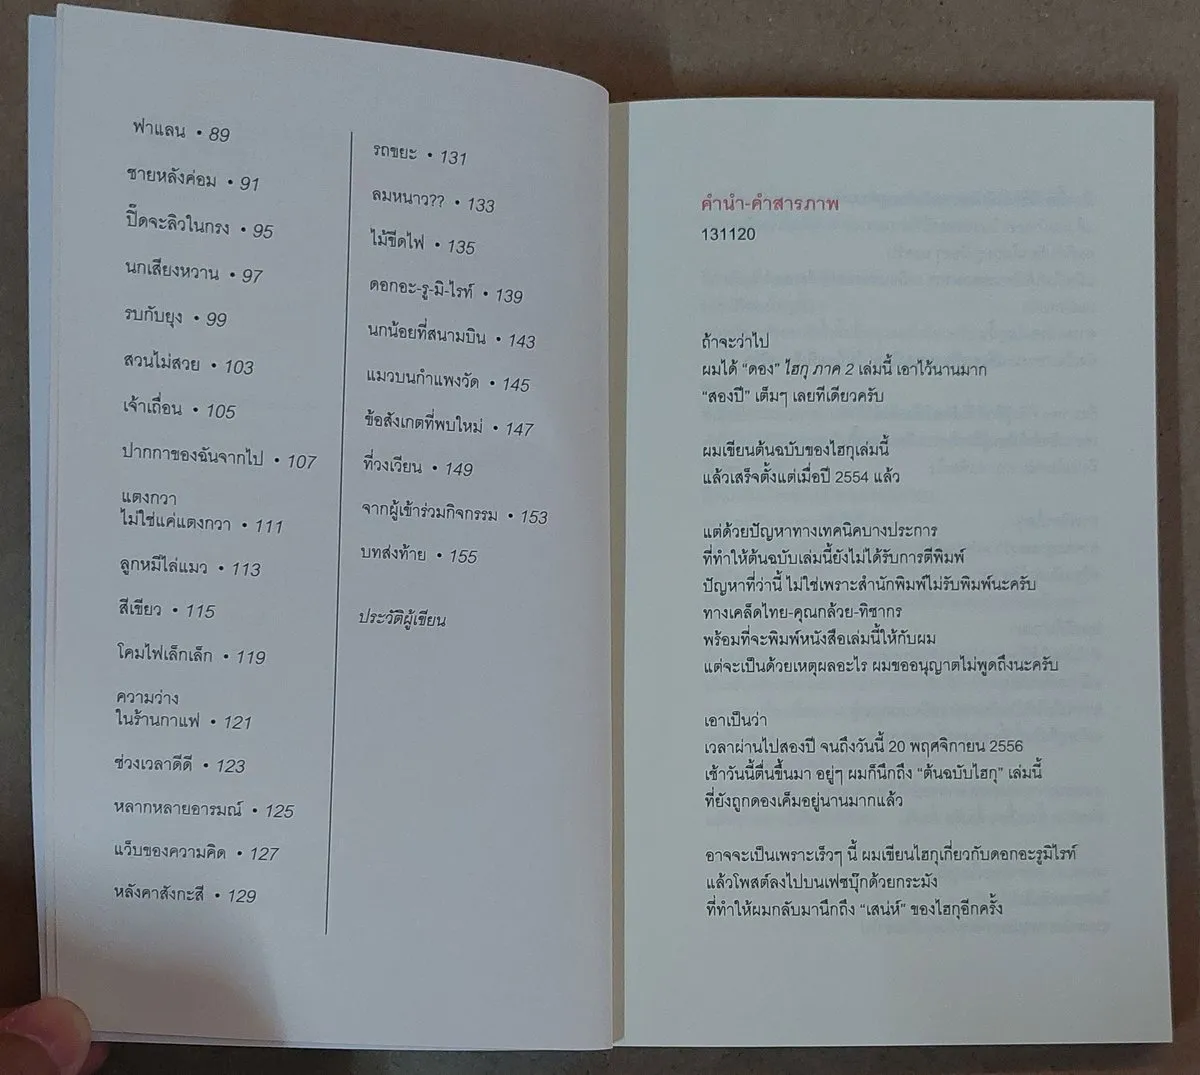 ฟาแลน • 89
ชายหลังค่อม • 91
ปิ๊ดจะลิวในกรง • 95
นกเสียงหวาน • 97
รบกับยุง • 99
สวนไม่สวย • 103
เจ้าเถื่อน • 105
ปากกาของฉันจากไป • 107
แตงกวา
ไม่ใช่แค่แตงกวา • 111
ลูกหมีไล่แมว • 113
สีเขียว • 115
โคมไฟเล็กเล็ก • 119
ความว่าง
ในร้านกาแฟ • 121
ช่วงเวลาดีดี • 123
หลากหลายอารมณ์ • 125
แว็บของความคิด • 127
หลังคาสังกะสี • 129
รถขยะ • 131
ลมหนาว?? • 133
ไม้ขีดไฟ • 135
ดอกอะ-รู-มิ-ไรท์ • 139
นกน้อยที่สนามบิน • 143
แมวบนกำแพงวัด • 145
ข้อสังเกตที่พบใหม่ • 147
ที่วงเวียน • 149
จากผู้เข้าร่วมกิจกรรม • 153
บทส่งท้าย • 155
ประวัติผู้เขียน
คำนำ-คำสารภาพ
131120
ถ้าจะว่าไป
ผมได้ “ดอง” ไฮกุ ภาค 2 เล่มนี้ เอาไว้นานมาก
“สองปี” เต็มๆ เลยทีเดียวครับ
ผมเขียนต้นฉบับของไฮกุเล่มนี้
แล้วเสร็จตั้งแต่เมื่อปี 2554 แล้ว
แต่ด้วยปัญหาทางเทคนิคบางประการ
ที่ทำให้ต้นฉบับเล่มนี้ยังไม่ได้รับการตีพิมพ์
ปัญหาที่ว่านี้ ไม่ใช่เพราะสำนักพิมพ์ไม่รับพิมพ์นะครับ
ทางเคล็ดไทย-คุณกล้วย-ทิชากร
พร้อมที่จะพิมพ์หนังสือเล่มนี้ให้กับผม
แต่จะเป็นด้วยเหตุผลอะไร ผมขออนุญาตไม่พูดถึงนะครับ
เอาเป็นว่า
เวลาผ่านไปสองปี จนถึงวันนี้ 20 พฤศจิกายน 2556
เช้าวันนี้ตื่นขึ้นมา อยู่ๆ ผมก็นึกถึง “ต้นฉบับไฮกุ” เล่มนี้
ที่ยังถูกดองเค็มอยู่นานมากแล้ว
อาจจะเป็นเพราะเร็วๆ นี้ ผมเขียนไฮกุเกี่ยวกับดอกอะรูมิไรท์
แล้วโพสต์ลงไปบนเฟซบุ๊กด้วยกระมัง
ที่ทำให้ผมกลับมานึกถึง “เสน่ห์” ของไฮกุอีกครั้ง